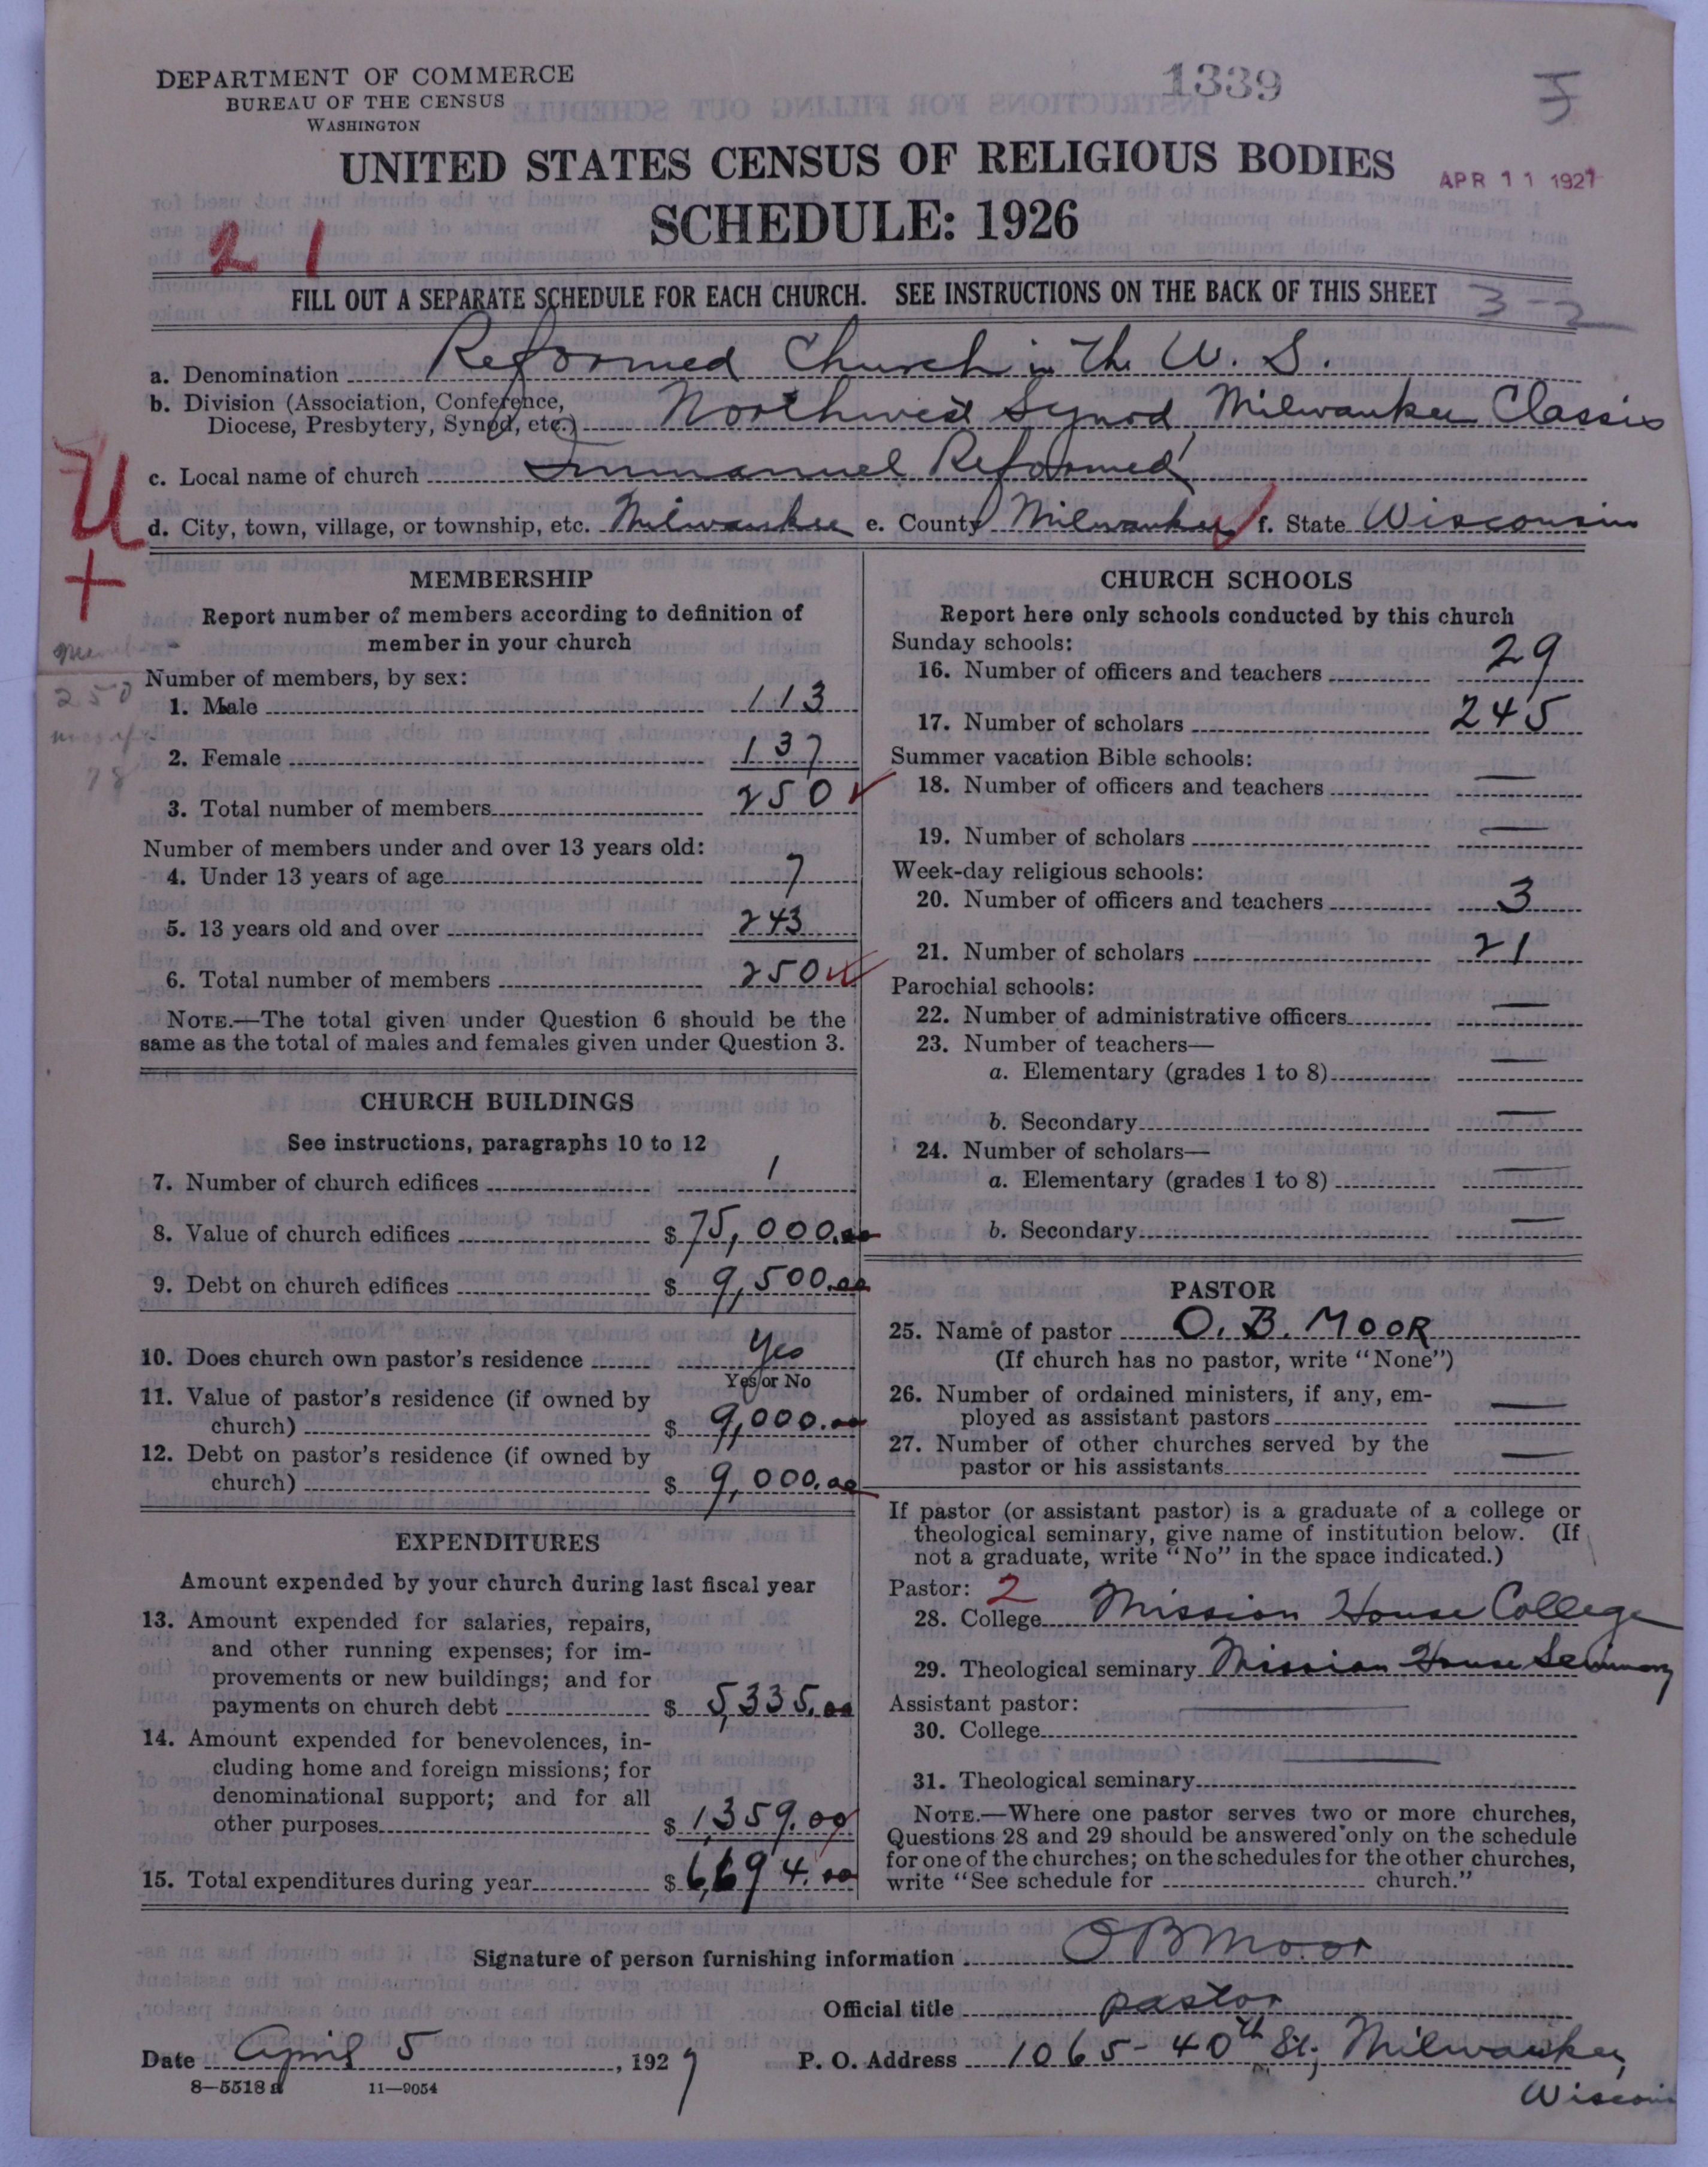 DEPARTMENT OF COMMERCE
BUREAU OF THE CENSUS
WASHINGTON
1339
UNITED STATES CENSUS OF RELIGIOUS BODIES
APR 11 1927
SCHEDULE: 1926
21
FILL OUT A SEPARATE SCHEDULE FOR EACH CHURCH. SEE INSTRUCTIONS ON THE BACK OF THIS SHEET
3-2
a. Denomination Reformed Church in the U. S.
b. Division (Association, Conference,
Diocese, Presbytery, Synod, etc.) Northwest Synod, Milwaukee Classis
c. Local name of church Immanuel Reformed
U
d. City, town, village, or township, etc. Milwaukee e. County Milwaukee f. State Wisconsin
+
MEMBERSHIP
Report number of members according to definition of
member in your church
Number of members, by sex:
250
1. Male 113
2. Female 137
78
3. Total number of members 250
Number of members under and over 13 years old:
4. Under 13 years of age 7
5. 13 years old and over 243
6. Total number of members 250
NOTE.—The total given under Question 6 should be the
same as the total of males and females given under Question 3.
CHURCH BUILDINGS
See instructions, paragraphs 10 to 12
7. Number of church edifices 1
8. Value of church edifices $75,000.00
9. Debt on church edifices $ 9,500.00
10. Does church own pastor's residence Yes
Yes or No
11. Value of pastor's residence (if owned by
church) $ 9,000.00
12. Debt on pastor's residence (if owned by
church) $ 9,000.00
EXPENDITURES
Amount expended by your church during last fiscal year
13. Amount expended for salaries, repairs,
and other running expenses; for im-
provements or new buildings; and for
payments on church debt $ 5,335.00
14. Amount expended for benevolences, in-
cluding home and foreign missions; for
denominational support; and for all
other purposes $ 1,359.00
15. Total expenditures during year $ 6,694.00
CHURCH SCHOOLS
Report here only schools conducted by this church
Sunday schools:
16. Number of officers and teachers 29
17. Number of scholars 245
Summer vacation Bible schools:
18. Number of officers and teachers —
19. Number of scholars —
Week-day religious schools:
20. Number of officers and teachers 3
21. Number of scholars 21
Parochial schools:
22. Number of administrative officers —
23. Number of teachers—
a. Elementary (grades 1 to 8) —
b. Secondary —
24. Number of scholars—
a. Elementary (grades 1 to 8) —
b. Secondary —
PASTOR
25. Name of pastor O. B. MOOR
(If church has no pastor, write "None")
26. Number of ordained ministers, if any, em-
ployed as assistant pastors —
27. Number of other churches served by the
pastor or his assistants —
If pastor (or assistant pastor) is a graduate of a college or
theological seminary, give name of institution below. (If
not a graduate, write "No" in the space indicated.)
Pastor: 2
28. College Mission House College
29. Theological seminary Mission House Seminary
Assistant pastor:
30. College —
31. Theological seminary —
NOTE.—Where one pastor serves two or more churches,
Questions 28 and 29 should be answered only on the schedule
for one of the churches; on the schedules for the other churches,
write "See schedule for church."
Signature of person furnishing information O B Moor
Official title pastor
Date April 5, 1927 P. O. Address 1065- 40th St., Milwaukee,
Wisconsin
8—5518 a 11—9054